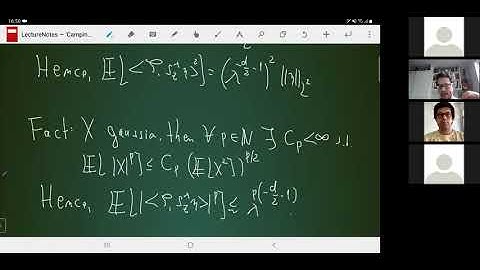 16:50
LectureNotes – 'Campin...
Hence, 𝔼[<ξ, S_z^{-1} η>^2] = (λ^{-d/2-1})^2 ||η||_{L^2}^2
Fact: X gaussia, then ∀ p∈ℕ ∃ C_p<∞ s.t.
𝔼[|X|^p] ≤ C_p (𝔼[X^2])^{p/2}
Hence, 𝔼[|<ξ, S_z^{-1} η>|^p] ≲ λ^{p(-d/2-1)}